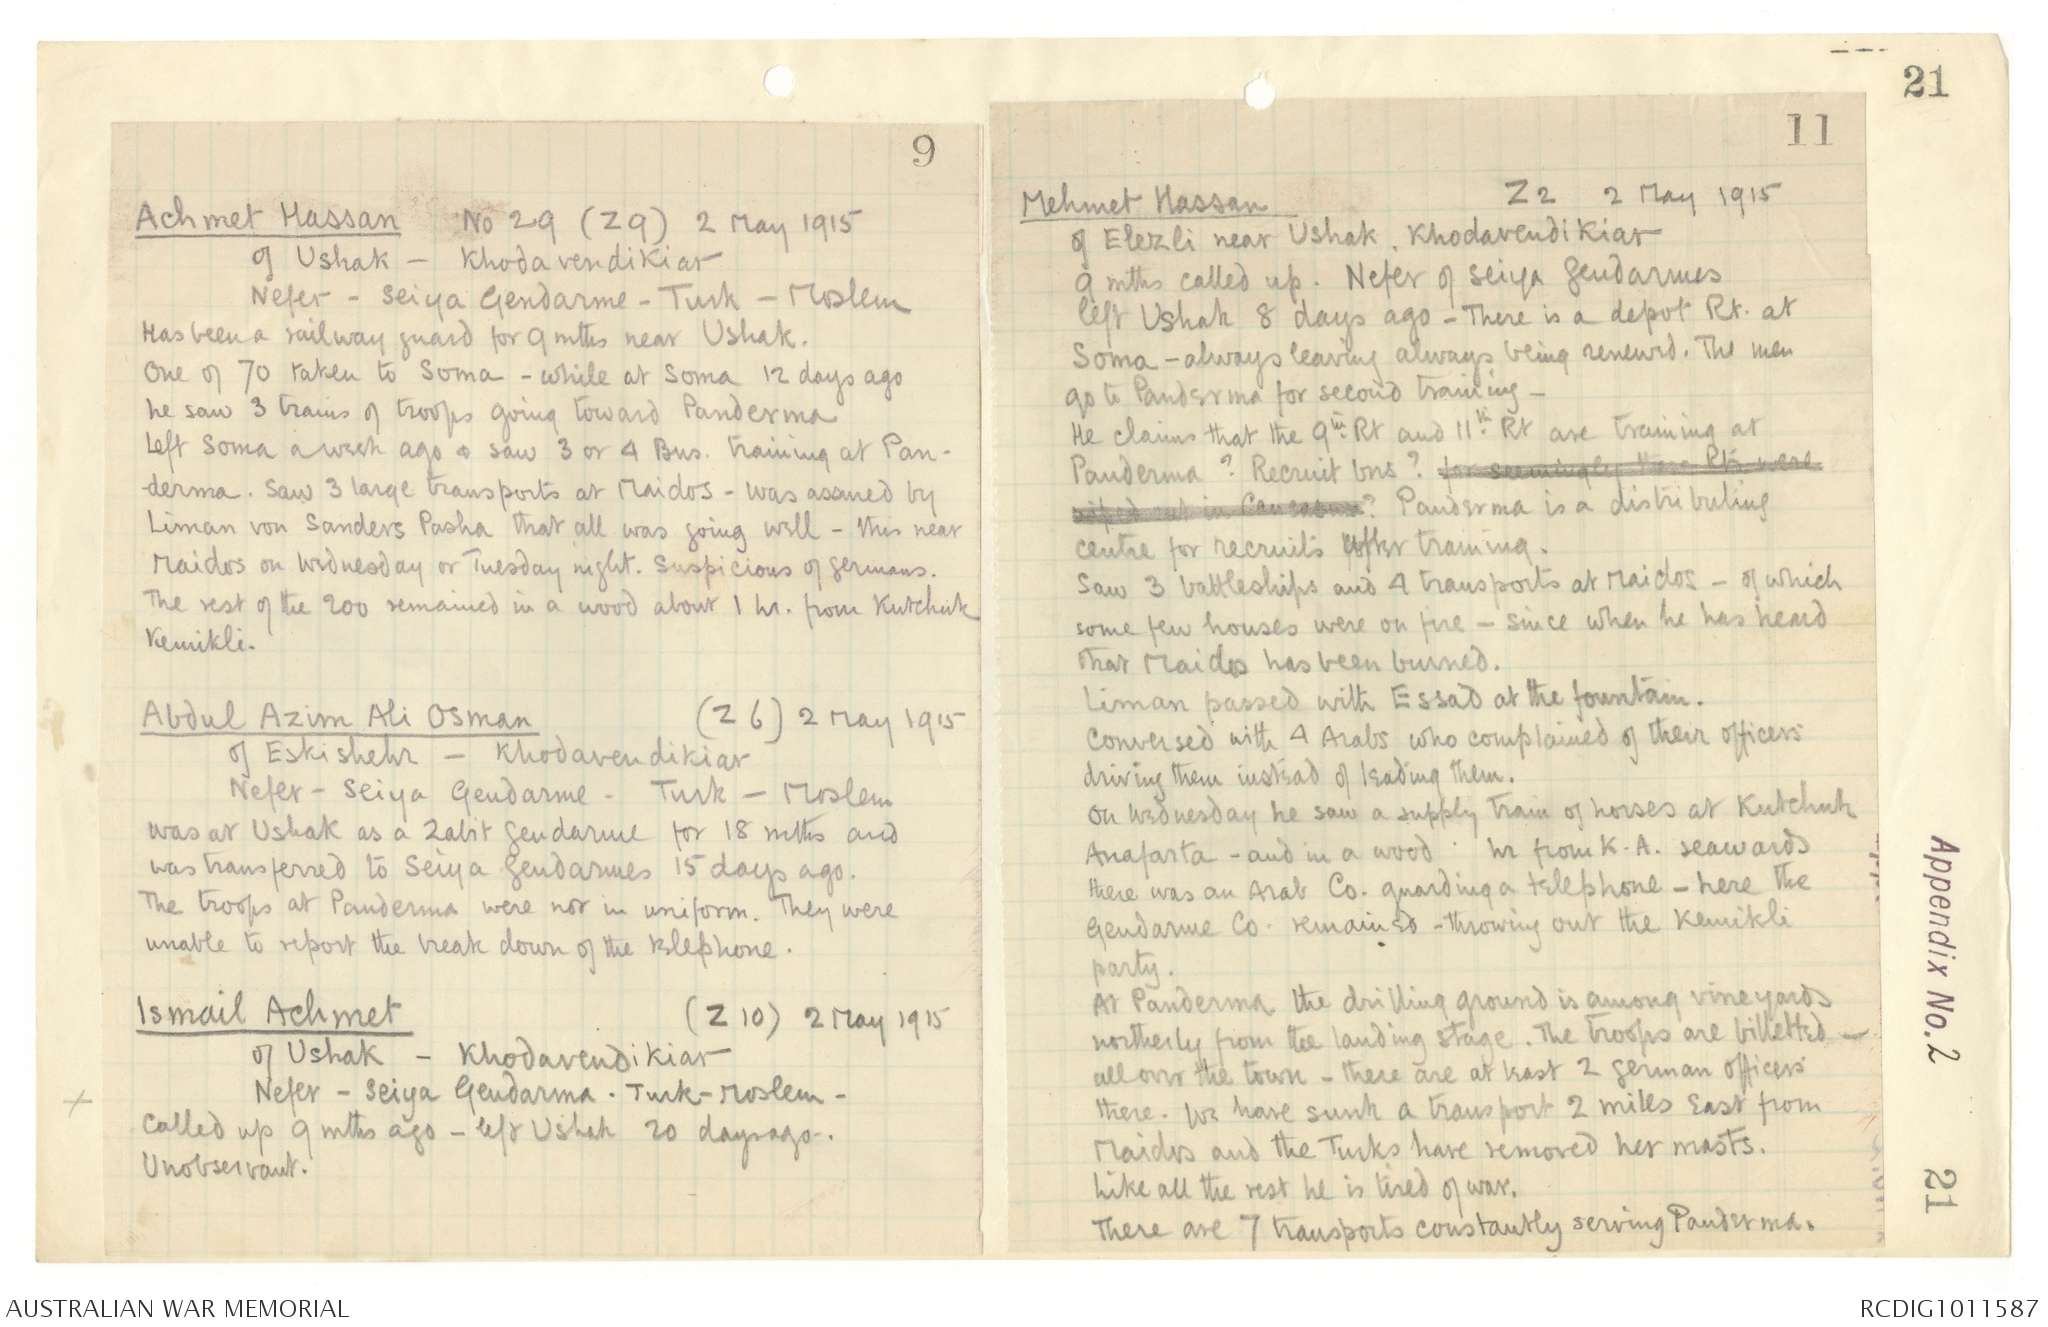 21
9
Achmet Hassan No 29 (Z9) 2 May 1915
of Ushak – Khodavendikiar
Nefer – Seiya Gendarme – Turk – Moslem
Has been a railway guard for 9 mths near Ushak.
One of 70 taken to Soma – while at Soma 12 days ago
he saw 3 trains of troops going toward Panderma
Left Soma a week ago & saw 3 or 4 Bns. training at Pan-
derma. Saw 3 large transports at Maidos – was assured by
Liman von Sanders Pasha that all was going well – this near
Maidos on Wednesday or Tuesday night. Suspicious of germans.
The rest of the 200 remained in a wood about 1 hr. from Kutchuk
Kemikli.
Abdul Azim Ali Osman (Z6) 2 May 1915
of Eskishehr – Khodavendikiar
Nefer – Seiya Gendarme - Turk – Moslem
was at Ushak as a Zabit gendarme for 18 mths and
was transferred to Seiya gendarmes 15 days ago.
The troops at Panderma were not in uniform. They were
unable to report the break down of the telephone.
Ismail Achmet (Z10) 2 May 1915
of Ushak – Khodavendikiar
Nefer – Seiya Gendarma. Turk – Moslem –
Called up 9 mths ago – left Ushak 20 days ago.
Unobservant.
11
Mehmet Hassan Z2 2 May 1915
of Elezli near Ushak, Khodavendikiar
9 mths called up. Nefer of Seiya gendarmes
left Ushak 8 days ago – There is a depot Rt. at
Soma – always leaving always being renewed. The men
go to Panderma for second training –
He claims that the 9th Rt and 11th Rt are training at
Panderma ? Recruit bns ? for seemingly these Rts were
wiped out in Caucasus? Panderma is a distributing
centre for recruits after training.
Saw 3 battleships and 4 transports at Maidos – of which
some few houses were on fire – since when he has heard
that Maidos has been burned.
Liman passed with Essad at the fountain.
Conversed with 4 Arabs who complained of their officers
driving them instead of leading them.
On Wednesday he saw a supply train of horses at Kutchuk
Anafarta – and in a wood hr from K.A. seawards
there was an Arab Co. guarding a telephone – here the
Gendarme Co. remained – throwing out the Kemikli
party.
At Panderma the drilling ground is among vineyards
northerly from the landing stage. The troops are billetted –
all over the town – there are at least 2 german officers
there. We have sunk a transport 2 miles East from
Maidos and the Turks have removed her masts.
Like all the rest he is tired of war.
There are 7 transports constantly serving Panderma.
Appendix No. 2 21
AUSTRALIAN WAR MEMORIAL
RCDIG1011587